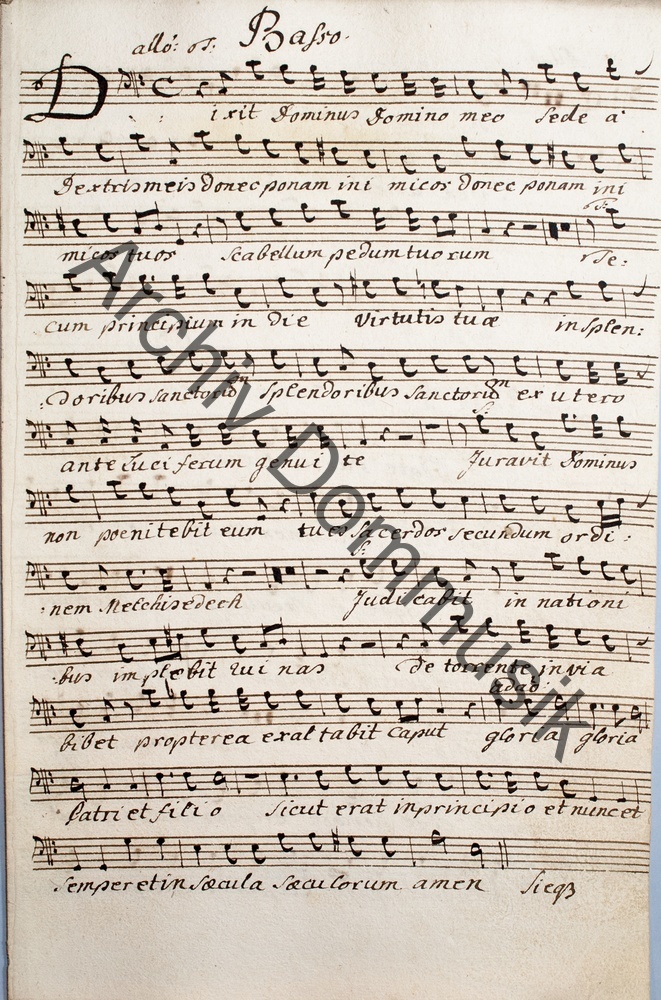 allo: Basso.
Dixit Dominus Domino meo sede a
Dextris meis donec ponam ini micos donec ponam ini
micos tuos scabellum pedum tuorum Te:
cum principium in Die Virtutis tuæ in splen:
:doribus sanctorum splendoribus sanctorum ex utero
ante luciferum genui te Juravit Dominus
non poenitebit eum tu es sacerdos secundum ordi:
:nem Melchisedech Judicabit in nationi
:bus implebit ruinas de torrente in via
adao:
bibet propterea exaltabit caput gloria gloria
Patri et filio sicut erat in principio et nunc et
semper et in sæcula sæculorum amen
Archiv Dommusik